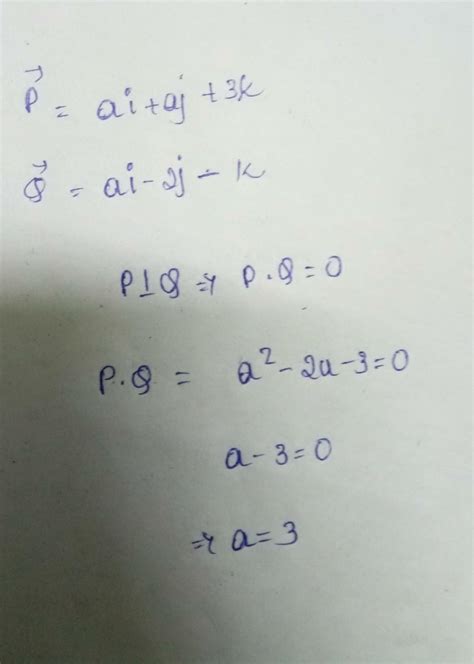 P⃗ = ai + aj + 3k
Q⃗ = ai - 2j - k
P⊥Q ⇒ P.Q = 0
P.Q = a² - 2a - 3 = 0
a - 3 = 0
⇒ a = 3